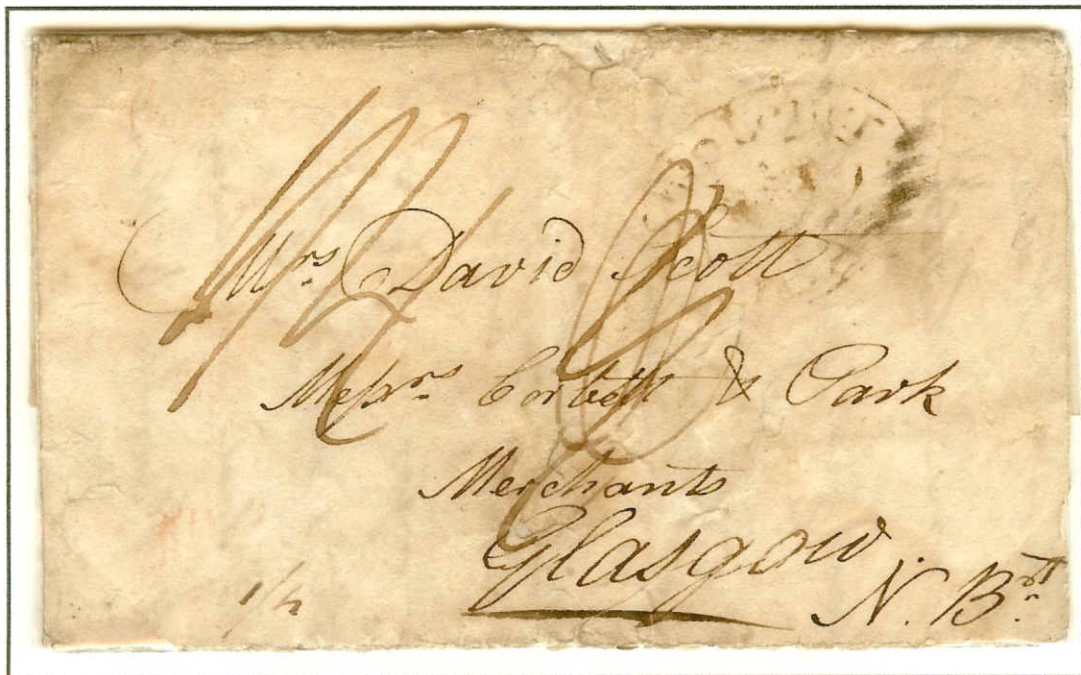 Mrs David Scott
Messrs Corbett & Park
Merchants
Glasgow.
N. Brt